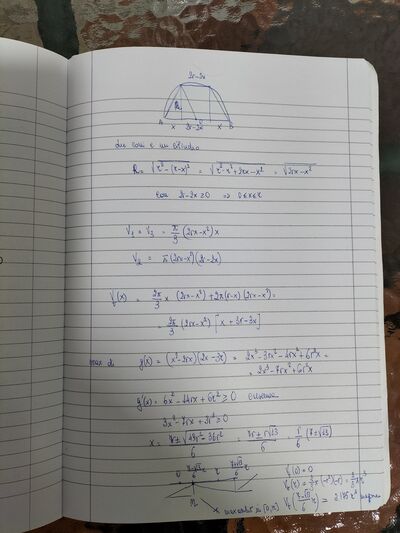 2r-2x
R
A x 2r-2x x B
due coni e un cilindro
R = √r²-(r-x)² = √r²-r²+2rx-x² = √2rx-x²
con 2r-2x ≥ 0 ⇒ 0≤x≤r
V₁ = V₃ = π/3 (2rx-x²)x
V₂ = π(2rx-x²)(2r-2x)
V(x) = 2π/3 x (2rx-x²)+2π(r-x)(2rx-x²) =
= 2π/3 (2rx-x²) [x+3r-3x]
max di y(x) = (x²-2rx)(2x-3r) = 2x³-3rx²-4rx²+6r²x =
= 2x³-7rx²+6r²x
y'(x) = 6x²-14rx+6r² ≥ 0
3x²-7rx+3r² ≥ 0
x = 7r±√49r²-36r² / 6 = 7r±r√13 / 6 = r/6 (7±√13)
0 7-√13/6 r r 7+√13/6 r
M
x max in (0,r)
V(0) = 0
V(r) = 2/3 π (-r²)(-r) = 2/3 π r³
V(7-√13/6 r) ≃